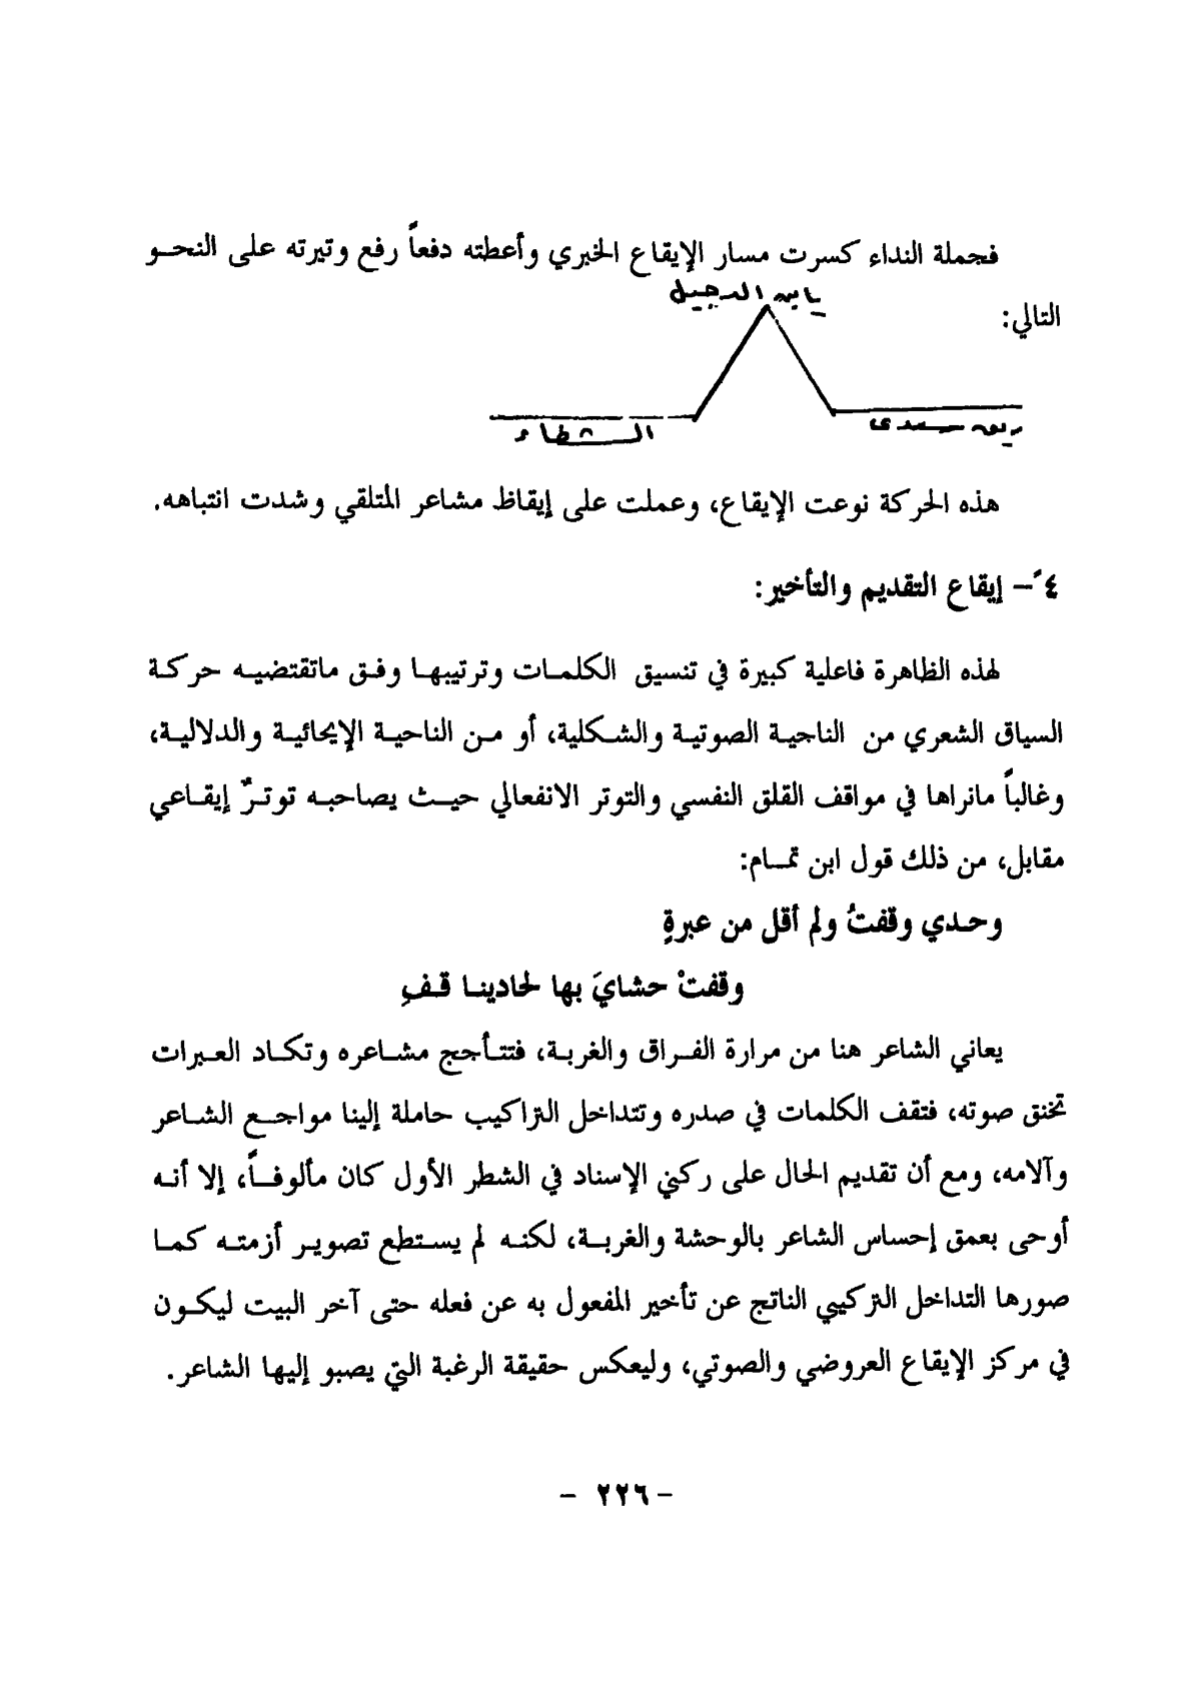 فجملة النداء كسرت مسار الإيقاع الخبري وأعطته دفعاً رفع وتيرته على النحو
التالي:
هذه الحركة نوعت الإيقاع، وعملت على إيقاظ مشاعر المتلقي وشدت انتباهه.
٤ً – إيقاع التقديم والتأخير:
لهذه الظاهرة فاعلية كبيرة في تنسيق الكلمات وترتيبها وفق ماتقتضيه حركة
السياق الشعري من الناحية الصوتية والشكلية، أو من الناحية الإيحائية والدلالية،
وغالباً مانراها في مواقف القلق النفسي والتوتر الانفعالي حيث يصاحبه توترٌ إيقاعي
مقابل، من ذلك قول ابن تمام:
وحدي وقفتُ ولم أقل من عبرةٍ
وقفتْ حشايَ بها لحادينا قفِ
يعاني الشاعر هنا من مرارة الفراق والغربة، فتتأجج مشاعره وتكاد العبرات
تخنق صوته، فتقف الكلمات في صدره وتتداخل التراكيب حاملة إلينا مواجع الشاعر
وآلامه، ومع أن تقديم الحال على ركني الإسناد في الشطر الأول كان مألوفاً، إلا أنه
أوحى بعمق إحساس الشاعر بالوحشة والغربة، لكنه لم يستطع تصوير أزمته كما
صورها التداخل التركيبي الناتج عن تأخير المفعول به عن فعله حتى آخر البيت ليكون
في مركز الإيقاع العروضي والصوتي، وليعكس حقيقة الرغبة التي يصبو إليها الشاعر.
- ٢٢٦ -